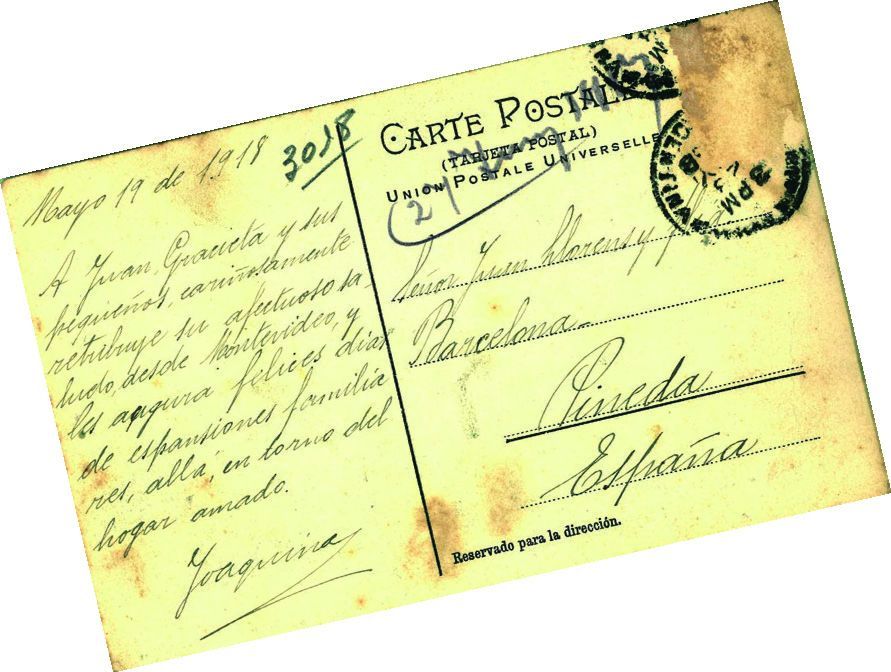 Mayo 19 de 1918
3018
A Juan, Gracieta y sus
pequeños, cariñosamente
retribuye su afectuoso sa-
ludo, desde Montevideo, y
les augura felices días
de espansiones familia
res, allá, en torno del
hogar amado.
Joaquina
CARTE POSTALE
(TARJETA POSTAL)
UNION POSTALE UNIVERSELLE
Señor Juan Llorens y
Barcelona
Pineda
España
Reservado para la dirección.
3 PM